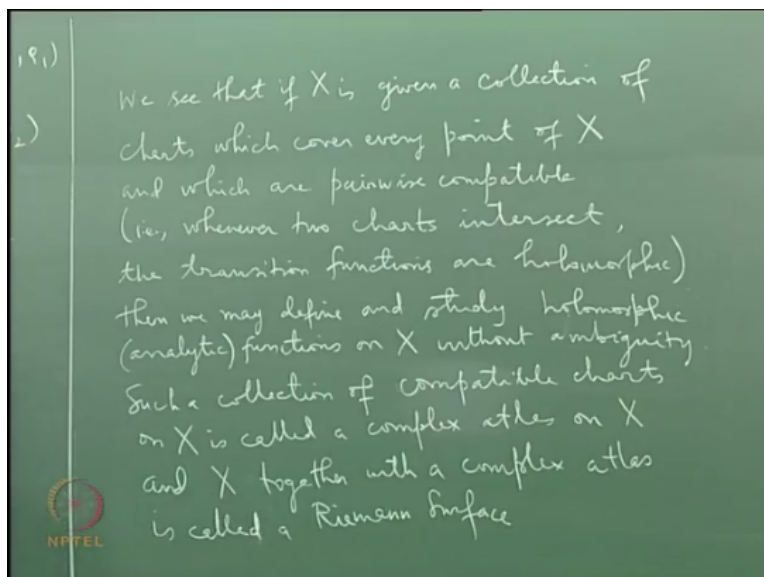 , φ₁)
₂)
We see that if X is given a collection of
charts which cover every point of X
and which are pairwise compatible
(i.e., whenever two charts intersect,
the transition functions are holomorphic)
then we may define and study holomorphic
(analytic) functions on X without ambiguity
Such a collection of compatible charts
on X is called a complex atlas on X
and X together with a complex atlas
is called a Riemann Surface
NPTEL